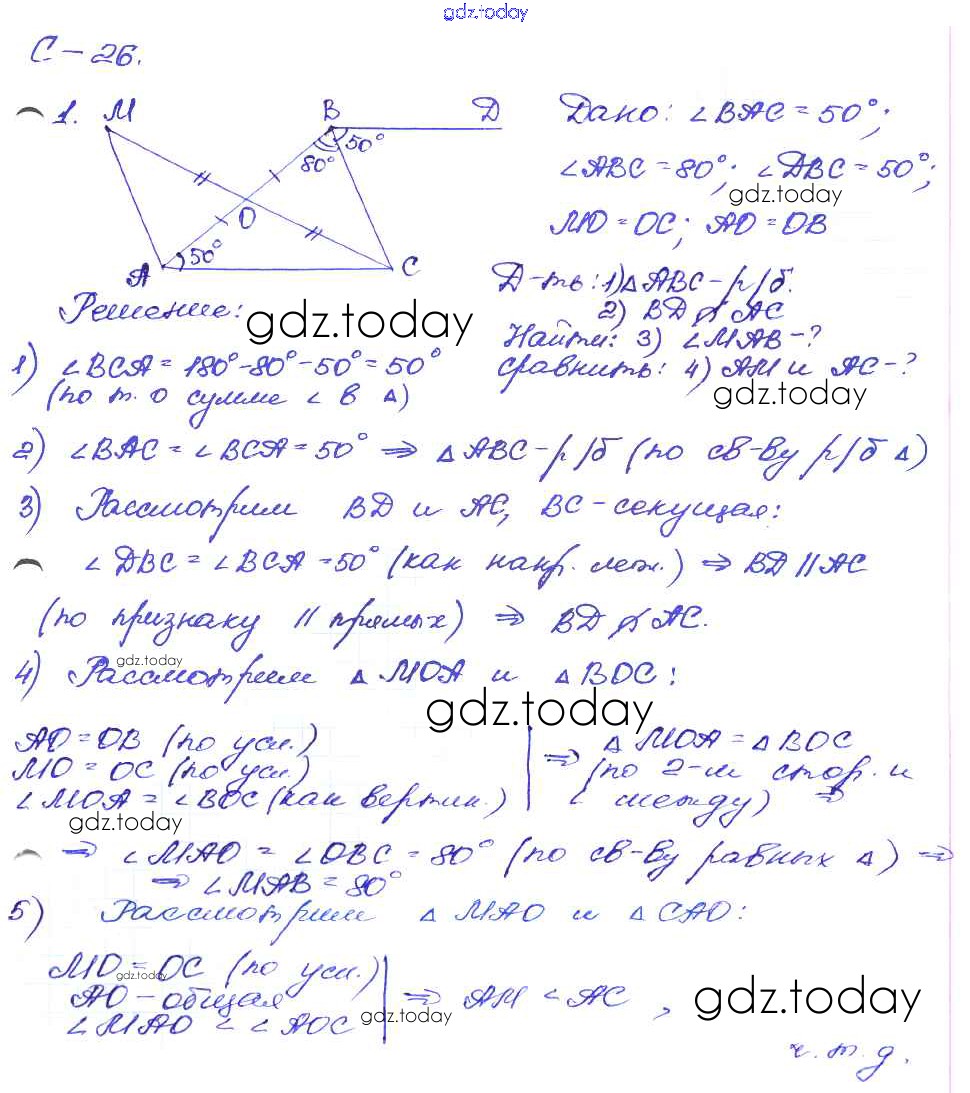 gdz.today
С-26.
1. M B D
50°
80°
O
50°
A C
Дано: ∠BAC = 50°;
∠ABC = 80°; ∠DBC = 50°;
gdz.today
MO = OC; AO = OB
Д-ть: 1) △ABC - р/б.
2) BD ∦ AC
Решение:
gdz.today
Найти: 3) ∠MAB - ?
Сравнить: 4) AM и AC - ?
gdz.today
1) ∠BCA = 180° - 80° - 50° = 50°
(по т. о сумме ∠ в △)
2) ∠BAC = ∠BCA = 50° ⇒ △ABC - р/б (по св-ву р/б △)
3) Рассмотрим BD и AC, BC - секущая:
∠DBC = ∠BCA = 50° (как накр. леж.) ⇒ BD || AC
(по признаку || прямых) ⇒ BD ∦ AC.
gdz.today
4) Рассмотрим △ MOA и △BOC:
gdz.today
AO = OB (по усл.)
MO = OC (по усл.)
∠MOA = ∠BOC (как вертик.)
⇒ △ MOA = △ BOC
(по 2-м стор. и
∠ между) ⇒
gdz.today
⇒ ∠MAO = ∠OBC = 80° (по св-ву равных △) ⇒
⇒ ∠MAB = 80°
5) Рассмотрим △ MAO и △ CAO:
MO = OC (по усл.)
gdz.today
AO - общая
∠MAO < ∠AOC
⇒ AM < AC,
gdz.today
gdz.today
ч.т.д.